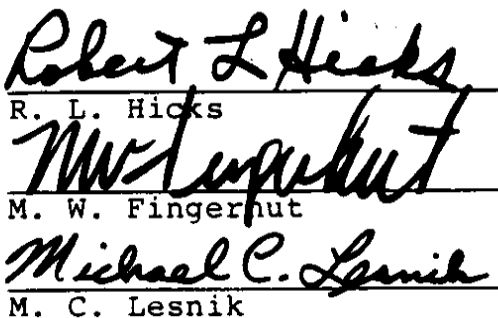 Robert L Hicks
R. L. Hicks
MW Fingerhut
M. W. Fingerhut
Michael C. Lesnik
M. C. Lesnik